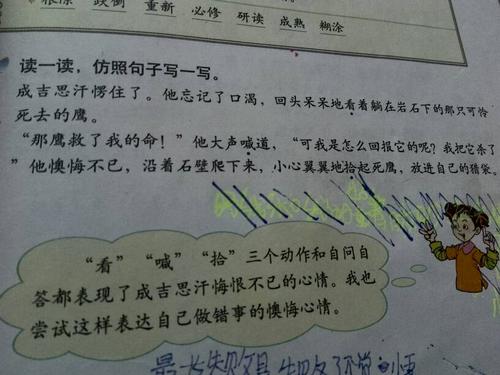 跌倒 重新 必修 研读 成熟 糊涂
读一读，仿照句子写一写。
成吉思汗愣住了。他忘记了口渴，回头呆呆地看着躺在岩石下的那只可怜
死去的鹰。
“那鹰救了我的命！”他大声喊道，“可我是怎么回报它的呢？我把它杀了
”他懊悔不已，沿着石壁爬下来，小心翼翼地拾起死鹰，放进自己的猎袋。
“看”“喊”“拾”三个动作和自问自
答都表现了成吉思汗悔恨不已的心情。我也
尝试这样表达自己做错事的懊悔心情。